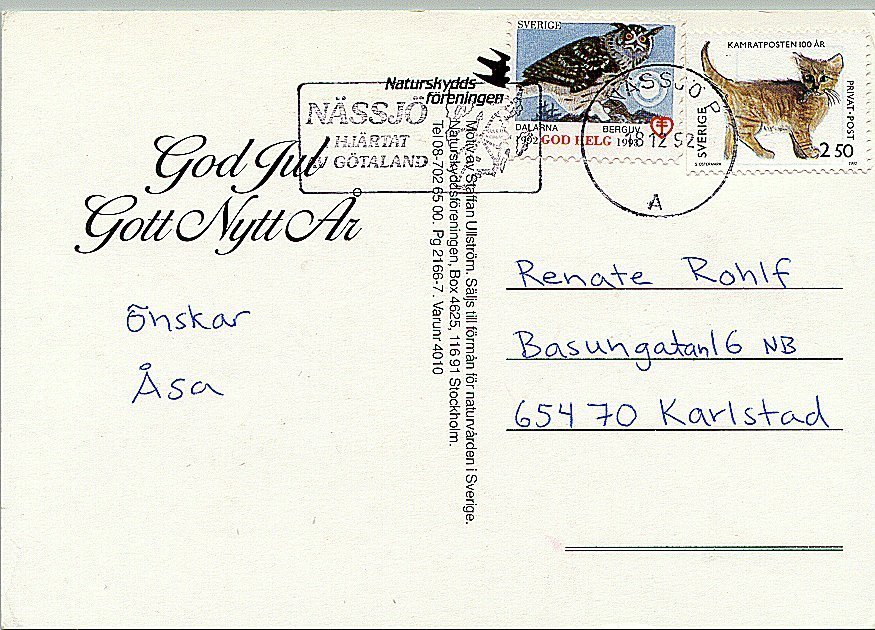 Naturskydds
föreningen
NÄSSJÖ
HJÄRTAT
AV GÖTALAND
SVERIGE
DALARNA BERGUV
1992 GOD HELG 1993
NÄSSJÖ P
8 12 92
A
KAMRATPOSTEN 100 ÅR
SVERIGE
PRIVAT-POST
2 50
1992
God Jul
Gott Nytt År
önskar
Åsa
Motiv av Staffan Ullström. Säljs till förmån för naturvården i Sverige.
Naturskyddsföreningen, Box 4625, 116 91 Stockholm.
Tel 08-702 65 00. Pg 2166-7. Varunr 4010
Renate Rohlf
Basungatan 16 NB
654 70 Karlstad